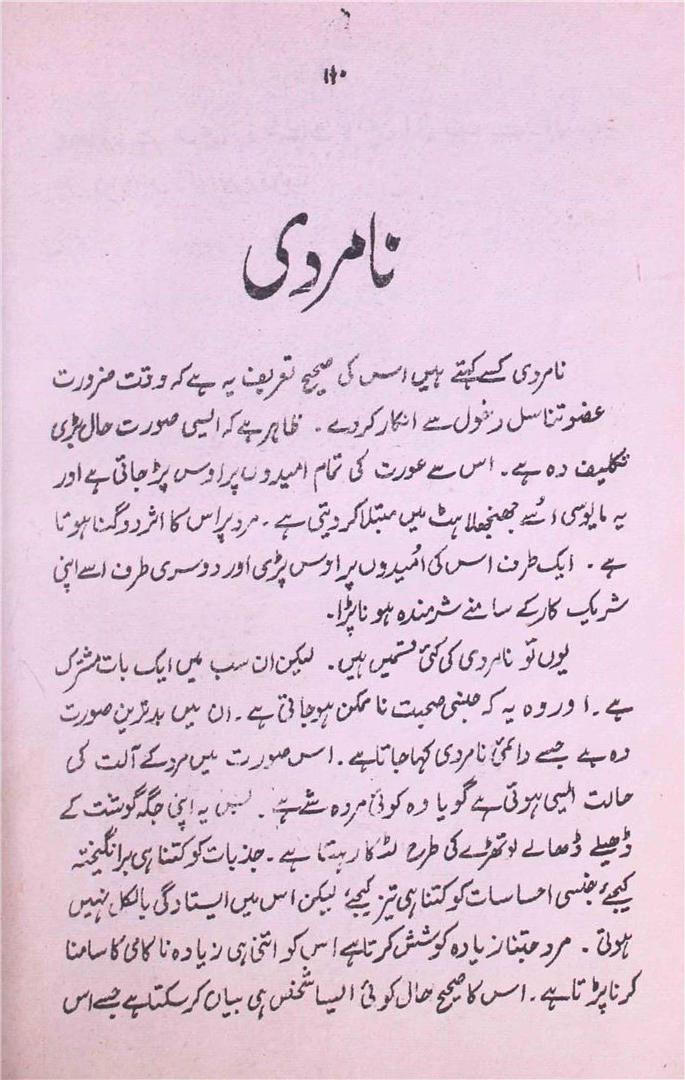 ۱۲۰
نامردی
نامردی کسے کہتے ہیں اس کی صحیح تعریف یہ ہے کہ وقت ضرورت
عضو تناسل دخول سے انکار کردے۔ ظاہر ہے کہ ایسی صورت حال بڑی
تکلیف دہ ہے۔ اس سے عورت کی تمام امیدوں پر اوس پڑ جاتی ہے اور
یہ مایوسی اُسے جھنجھلاہٹ میں مبتلا کر دیتی ہے۔ مرد پر اس کا اثر دوگنا ہوتا
ہے۔ ایک طرف اس کی اُمیدوں پر اوس پڑی اور دوسری طرف اسے اپنی
شریک کار کے سامنے شرمندہ ہونا پڑا۔
یوں تو نامردی کی کئی قسمیں ہیں۔ لیکن ان سب میں ایک بات مشترک
ہے۔ اور وہ یہ کہ جنسی صحبت ناممکن ہوجاتی ہے۔ ان میں بدترین صورت
وہ ہے جسے دائمی نامردی کہا جاتا ہے۔ اس صورت میں مرد کے آلت کی
حالت ایسی ہوتی ہے گویا وہ کوئی مردہ شے ہے۔ بس یہ اپنی جگہ گوشت کے
ڈھیلے ڈھالے لوتھڑے کی طرح لٹکا رہتا ہے۔ جذبات کو کتنا ہی برانگیختہ
کیجئے، جنسی احساسات کو کتنا ہی تیز کیجئے، لیکن اس میں ایستادگی بالکل نہیں
ہوتی۔ مرد جتنا زیادہ کوشش کرتا ہے اس کو اتنا ہی زیادہ ناکامی کا سامنا
کرنا پڑتا ہے۔ اس کا صحیح حال کوئی ایسا شخص ہی بیان کر سکتا ہے جسے اس